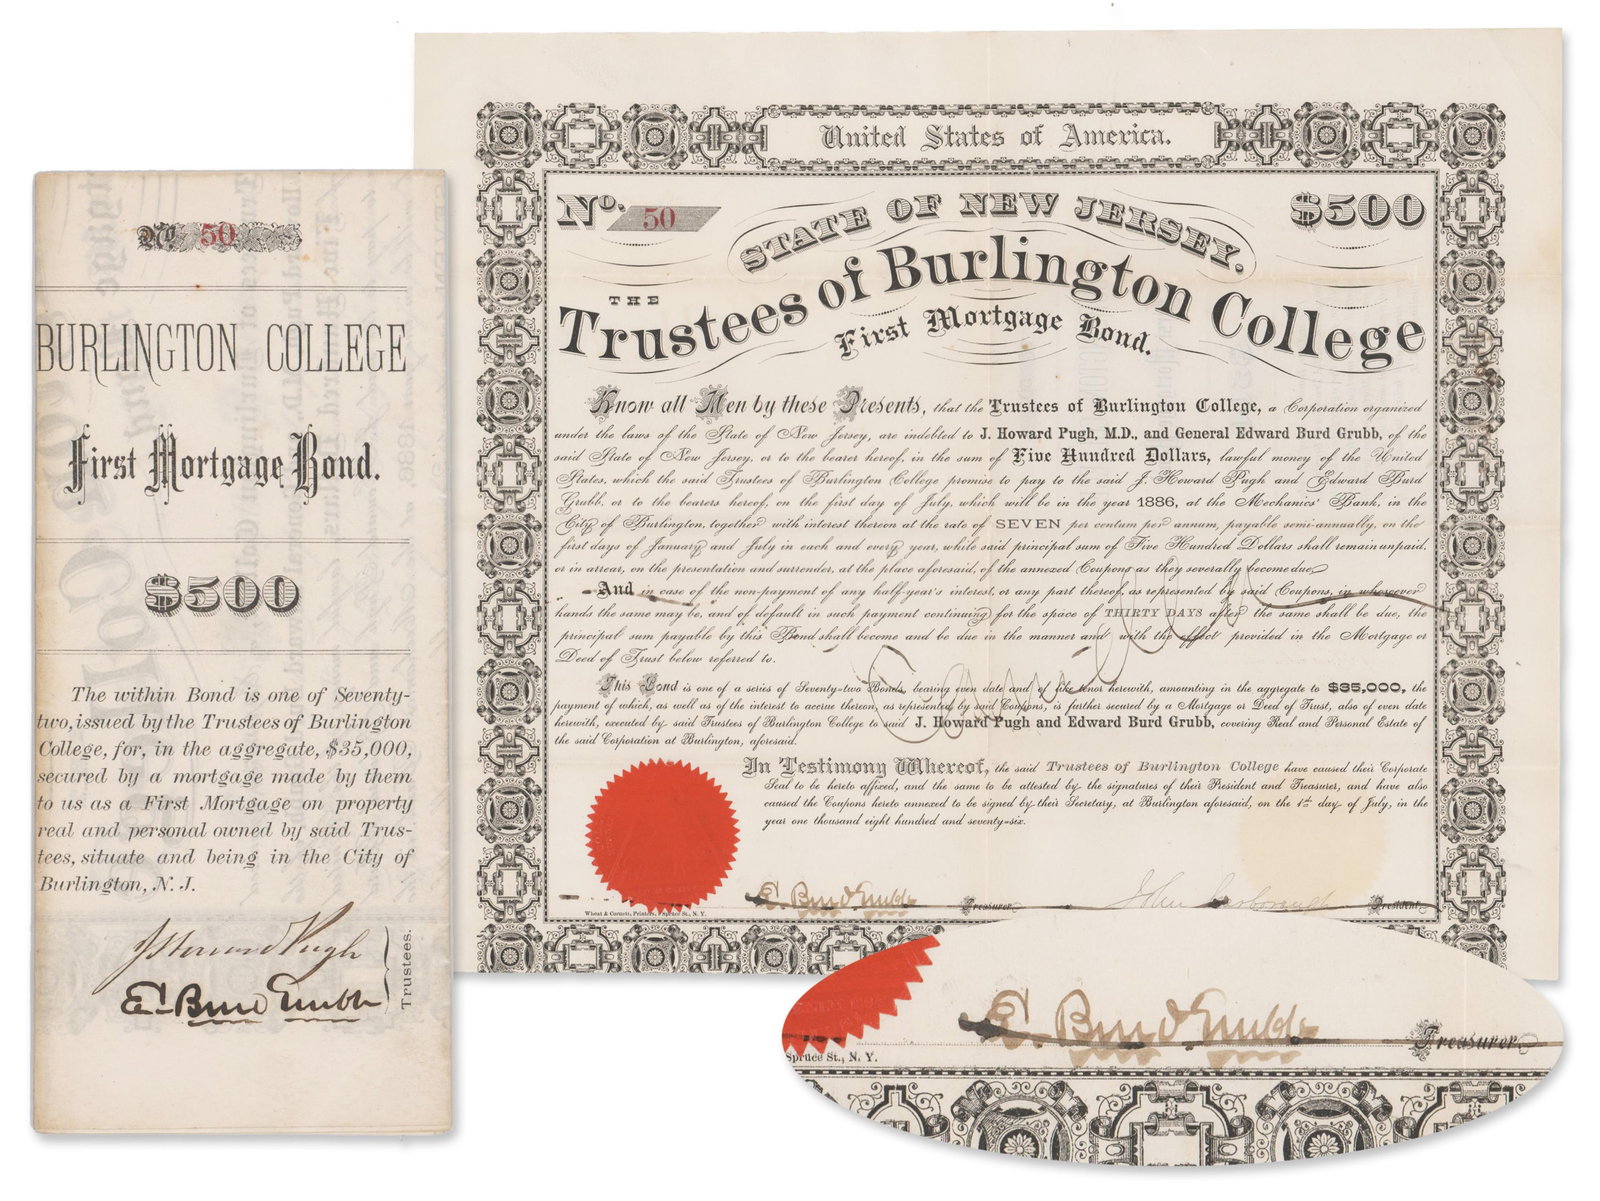 No 50
BURLINGTON COLLEGE
First Mortgage Bond.
$500
The within Bond is one of Seventy-
two, issued by the Trustees of Burlington
College, for, in the aggregate, $35,000,
secured by a mortgage made by them
to us as a First Mortgage on property
real and personal owned by said Trus-
tees, situate and being in the City of
Burlington, N. J.
J Howard Pugh
E. Burd Grubb
Trustees.
United States of America.
No. 50
$500
STATE OF NEW JERSEY.
THE
Trustees of Burlington College
First Mortgage Bond.
Know all Men by these Presents, that the Trustees of Burlington College, a Corporation organized
under the laws of the State of New Jersey, are indebted to J. Howard Pugh, M.D., and General Edward Burd Grubb, of the
said State of New Jersey, or to the bearer hereof, in the sum of Five Hundred Dollars, lawful money of the United
States, which the said Trustees of Burlington College promise to pay to the said J. Howard Pugh and Edward Burd
Grubb, or to the bearers hereof, on the first day of July, which will be in the year 1886, at the Mechanics' Bank, in the
City of Burlington, together with interest thereon at the rate of SEVEN per centum per annum, payable semi-annually, on the
first days of January and July in each and every year, while said principal sum of Five Hundred Dollars shall remain unpaid,
or in arrear, on the presentation and surrender, at the place aforesaid, of the annexed Coupons as they severally become due.
And in case of the non-payment of any half-year's interest, or any part thereof, as represented by said Coupons, in whosever
hands the same may be, and of default in such payment continuing for the space of THIRTY DAYS after the same shall be due, the
principal sum payable by this Bond shall become and be due in the manner and with the effect provided in the Mortgage or
Deed of Trust below referred to.
This Bond is one of a series of Seventy-two Bonds, bearing even date and of like tenor herewith, amounting in the aggregate to $35,000, the
payment of which, as well as of the interest to accrue thereon, as represented by said Coupons, is further secured by a Mortgage or Deed of Trust, also of even date
herewith, executed by said Trustees of Burlington College to said J. Howard Pugh and Edward Burd Grubb, covering Real and Personal Estate of
the said Corporation at Burlington, aforesaid.
In Testimony Whereof, the said Trustees of Burlington College have caused their Corporate
Seal to be hereto affixed, and the same to be attested by the signatures of their President and Treasurer, and have also
caused the Coupons hereto annexed to be signed by their Secretary, at Burlington aforesaid, on the 1st day of July, in the
year one thousand eight hundred and seventy-six.
E. Burd Grubb Treasurer.
John President.
Wheat & Cornett, Printers, Spruce St., N. Y.
E. Burd Grubb Treasurer.
Spruce St., N. Y.